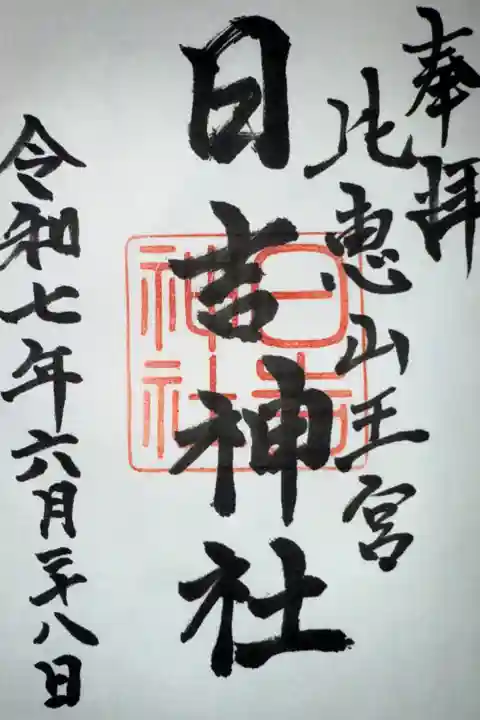 奉拝
比恵山王宮
日吉神社
令和七年六月二十八日
日吉
神社